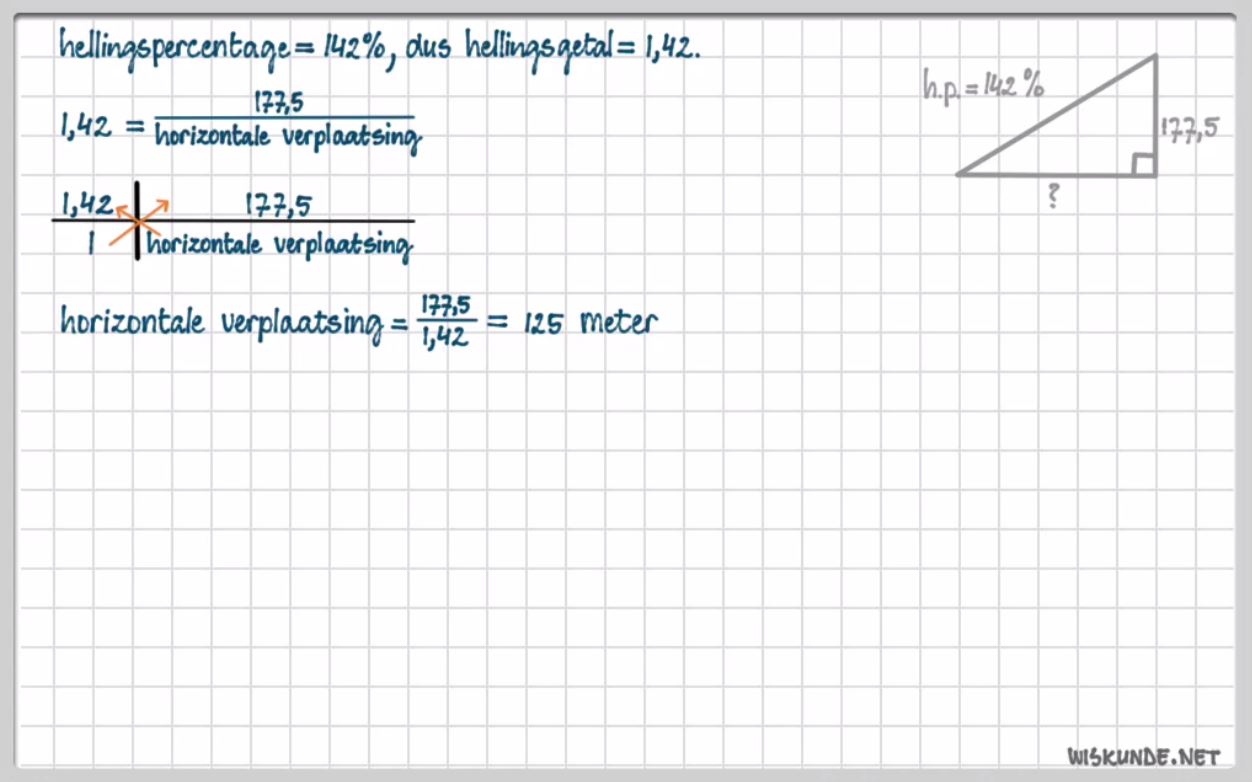 hellingspercentage = 142%, dus hellingsgetal = 1,42.
h.p. = 142%
177,5
?
1,42 = 177,5 / horizontale verplaatsing
1,42 | 177,5
1 | horizontale verplaatsing
horizontale verplaatsing = 177,5 / 1,42 = 125 meter
WISKUNDE.NET